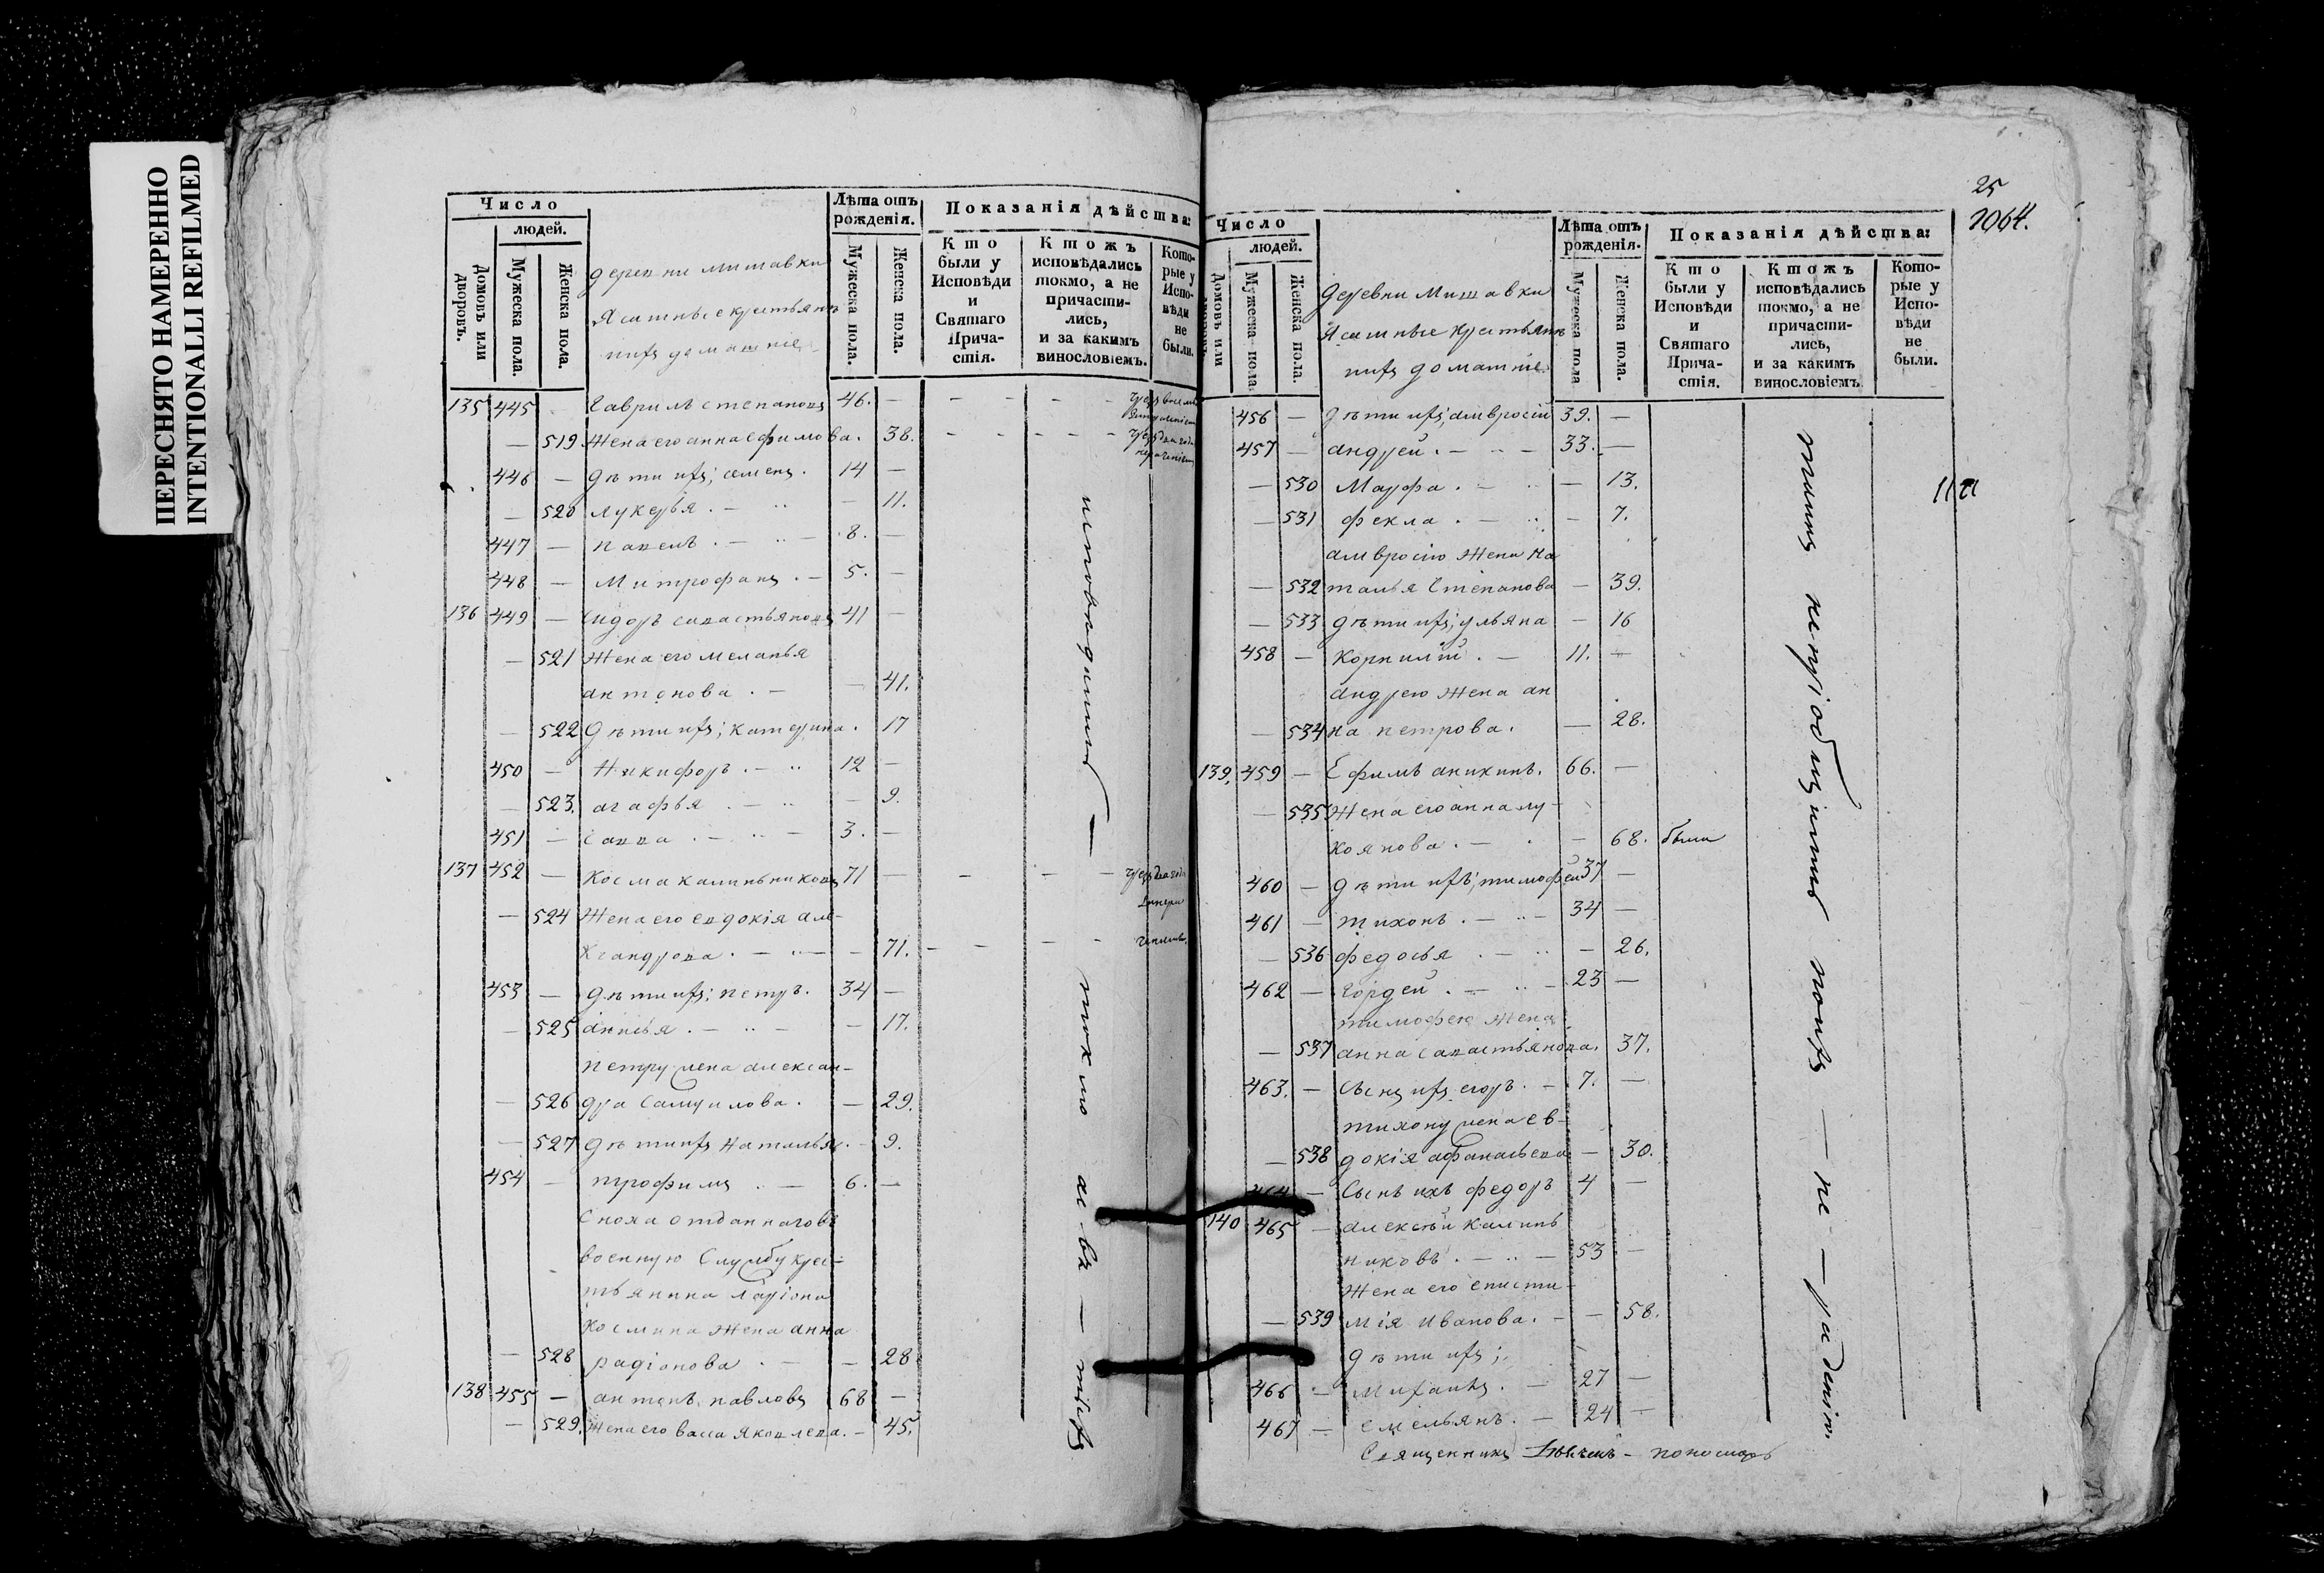 ПЕРЕСНЯТО НАМЕРЕННО
INTENTIONALLI REFILMED
Число
людей.
Домовъ или дворовъ.
Мужеска пола.
Женска пола.
деревни Митавки
Ясашные крестьянъ
ихъ домашніе
Лѣта отъ рожденія.
Мужеска пола.
Женска пола.
Показанія дѣйства:
Кто были у Исповѣди и Святаго Причастія.
Ктожъ исповѣдались токмо, а не причастились, и за какимъ винословіемъ.
Которые у Исповѣди не были.
135 445 Гаврилъ Степановъ 46.
— 519 Жена его анна ефимова. 38.
446 — дѣти ихъ; семенъ. 14 —
— 520 лукерья. — 11.
447 — павелъ. — 8. —
448 — Митрофанъ. — 5. —
136 449 — Сидоръ савастьяновъ 41 —
— 521 Жена его меланья
антонова. — — 41.
— 522 дѣти ихъ; катерина. 17
450 — Никифоръ. — 12 —
— 523. агафья — 9.
451 — Савва — 3. —
137 452 — Косма калинниковъ 71 —
— 524 Жена его евдокія але-
ксандрова. — — 71.
453 — дѣти ихъ; петръ. 34 —
— 525 анисья. — — 17.
петру жена алексан-
— 526 дра Самуилова. — 29.
— 527 дѣти ихъ наталья. — 9.
454 — трофимъ — 6. —
Сноха отданнаго въ
военную Службу крес-
тьянина Ларіона
Космина жена анна
— 528 радіонова — 28
138 455 — антонъ павловъ 68 —
— 529. Жена его васса яковлева. — 45.
исповѣдились — токмо
25
1064.
Число
людей.
Домовъ или
Мужеска пола.
Женска пола.
деревни Митавки
Ясашные крестьянъ
ихъ домашніе
Лѣта отъ рожденія.
Мужеска пола
Женска пола.
Показанія дѣйства:
Кто были у Исповѣди и Святаго Причастія.
Ктожъ исповѣдались токмо, а не причастились, и за какимъ винословіемъ
Которые у Исповѣди не были.
456 — дѣти ихъ; амвросій 39. —
457 — андрей. — 33. —
— 530 Марфа. — — 13.
— 531 фекла. — — 7.
амвросію жена на
— 532 талья Степанова — 39.
— 533 дѣти ихъ; ульяна — 16
458 — корнилій. — 11. —
андрею жена ан
— 534 на петрова. — 28.
139. 459 — Ефимъ аникинъ. 66. —
— 535 Жена его анна лу-
коянова. — — 68. были
460 — дѣти ихъ; тимофей 37 —
461 — тихонъ. — 34 —
— 536 федосья — — 26.
462 — Гордей. — 23 —
тимофею жена
— 537 анна савастьянова. 37.
463. — Сынъ ихъ егоръ. — 7. —
тихону жена ев-
— 538 докія афанасьева — 30.
464 — Сынъ ихъ федоръ 4 —
140 465 — алексѣй калин
никовъ. — 53 —
Жена его еписти-
— 539 мія иванова. — — 58.
дѣти ихъ;
466 — Михаилъ. — 27 —
467 — емельянъ. — 24 —
непріобщились
— не — радѣніем.
Священникъ